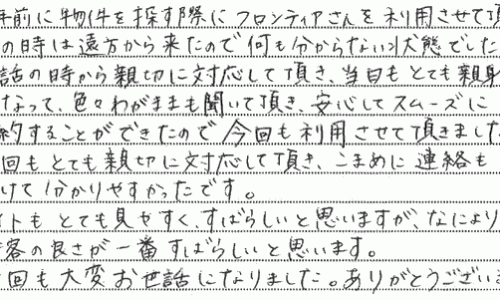 年前に物件を探す際にフロンティアさんを利用させて頂
の時は遠方から来たので何も分からない状態でした
話の時から親切に対応して頂き、当日もとても親身
なって、色々わがままも聞いて頂き、安心してスムーズに
約することができたので今回も利用させて頂きました
回もとても親切に対応して頂き、こまめに連絡も
けて分かりやすかったです。
イトもとても見やすく、すばらしいと思いますが、なにより
客の良さが一番すばらしいと思います。
回も大変お世話になりました。ありがとうござい